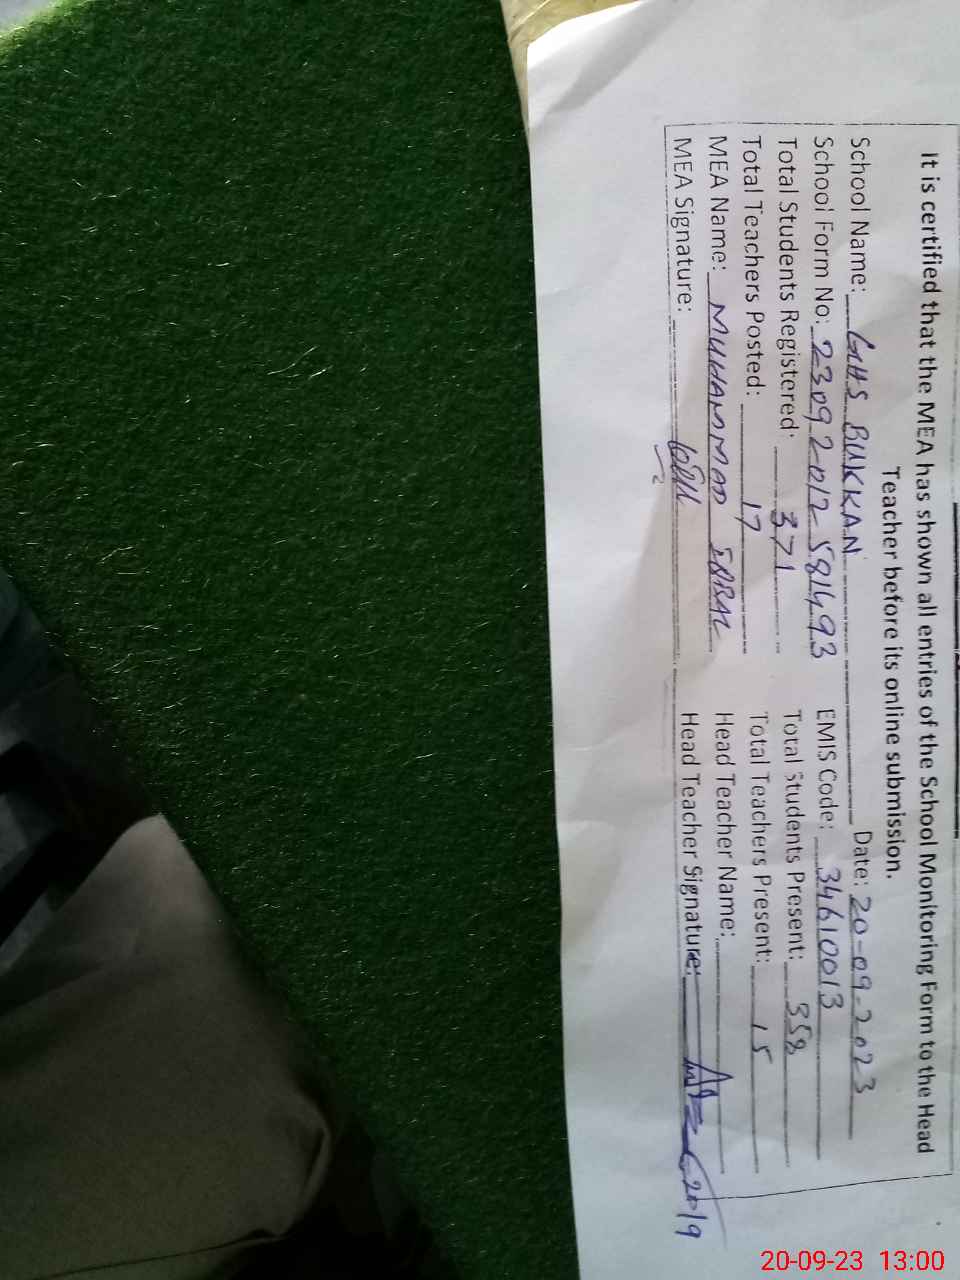 It is certified that the MEA has shown all entries of the School Monitoring Form to the Head
Teacher before its online submission.
School Name: GHS BUKKAN Date: 20-09-2023
School Form No: 23092012581493 EMIS Code: 34610013
Total Students Registered: 371 Total Students Present: 358
Total Teachers Posted: 17 Total Teachers Present: 15
MEA Name: MUHAMMAD IQBAL Head Teacher Name:
MEA Signature: Head Teacher Signature:
20-09-23 13:00